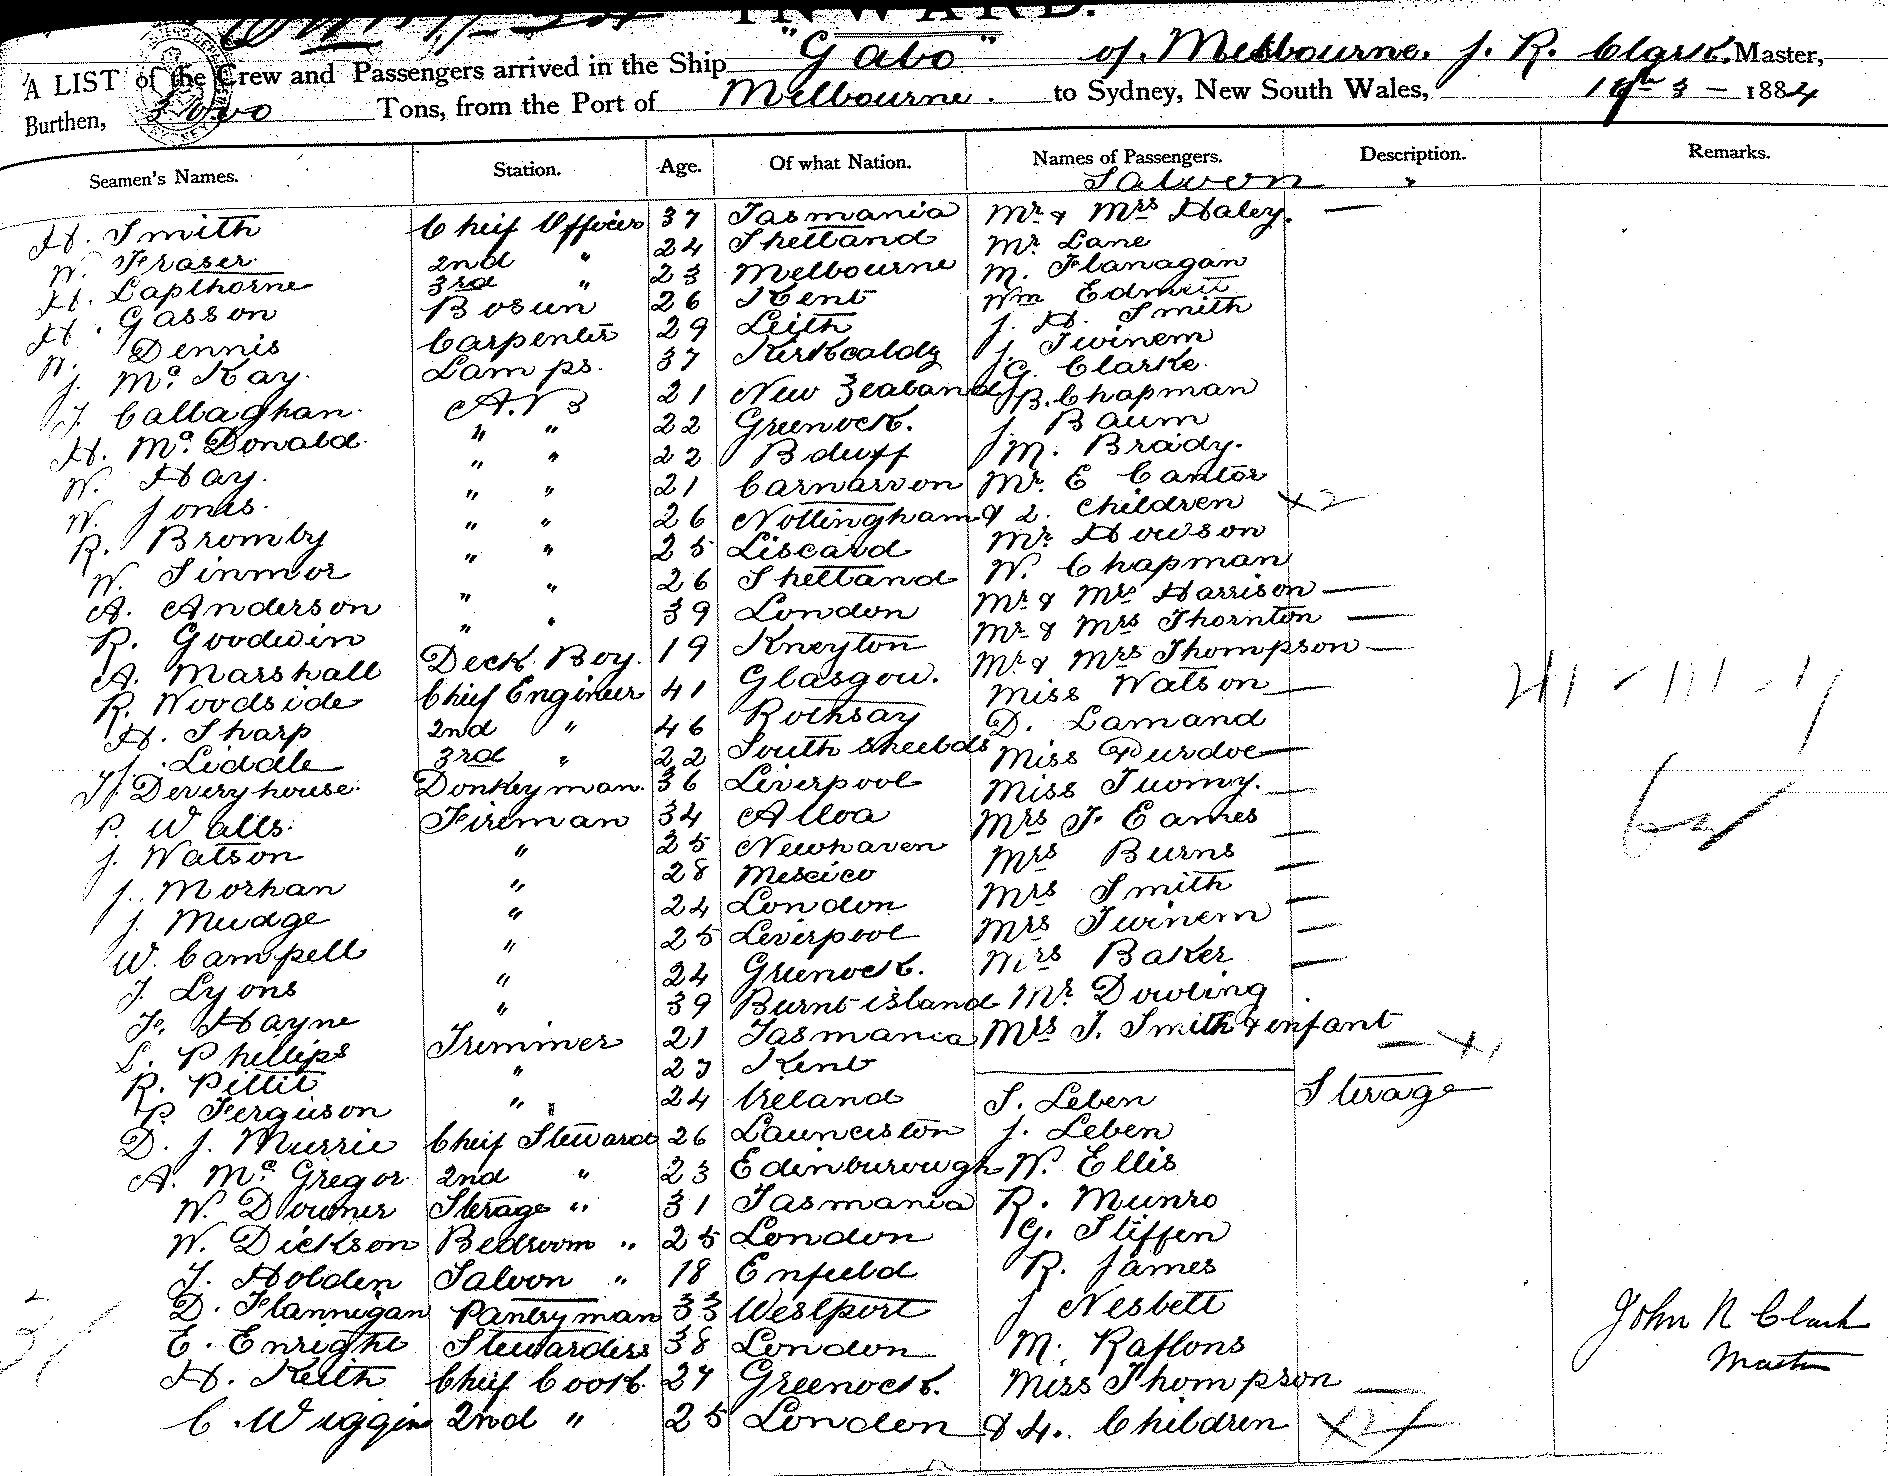 INWARD.
A LIST of the Crew and Passengers arrived in the Ship "Gabo" of Melbourne. J. R. Clark. Master,
Burthen, Tons, from the Port of Melbourne. to Sydney, New South Wales, 3 - 1884
Seamen's Names. Station. Age. Of what Nation. Names of Passengers. Description. Remarks.
Saloon "
H. Smith Chief Officer 37 Tasmania Mr & Mrs Haley. —
W. Fraser 2nd " 24 Shetland Mr Lane
H. Lapthorne 3rd " 23 Melbourne M. Flanagan
H. Gasson Bosun 26 Kent Wm
W. Dennis Carpenter 29 Leith J. H. Smith
J. Mc Kay. Lamps. 37 Kirkcaldy J. Twinem
J. Callaghan. A.B 21 New Zealand G. Clarke.
H. Mc Donald. " " 22 Greenock. B. Chapman
W. Hay. " " 22 Bduff J. Baum
W. Jones. " " 21 Carnarvon M. Brady.
R. Bromby " " 26 Nottingham Mr. E Cantor
W. Tinmor " " 25 Liscard & 2. Children x2
A. Anderson " " 26 Shetland Mr Howson
R. Goodwin " " 39 London W. Chapman
A. Marshall Deck Boy. 19 Kneyton Mr & Mrs Harrison —
R. Woodside Chief Engineer 41 Glasgow. Mr & Mrs Thornton —
H. Sharp 2nd " 46 Rothsay Mr & Mrs Thompson —
J. Liddle 3rd " 22 South Sheelds Miss Watson —
Deveryhouse. Donkeyman. 36 Liverpool D. Lamand
P. Walls. Fireman 34 Alloa Miss Purdoe —
J. Watson " 25 Newhaven Miss Tuomy. —
J. Morhan " 28 Mexico Mrs J. Eames —
J. Mudge " 24 London Mrs Burns —
W. Campell " 25 Liverpool Mrs Smith —
J. Lyons " 24 Greenock. Mrs Twinem —
F. Hayne " 39 Burntisland Mrs Baker —
L. Phillips Trimmer 21 Tasmania Mr Dowling
R. Pettit " 23 Kent Mrs J. Smith & infant — x1
P. Ferguson " 24 Ireland S. Leben Sterage
D. J. Murrie Cheif Steward 26 Launceston J. Leben
A. Mc Gregor 2nd " 23 Edinburough W. Ellis
W. Downer Sterage " 31 Tasmania R. Munro
W. Dickson Bedroom " 25 London G. Steffen
J. Holden Saloon " 18 Enfield R. James
D. Flannigan Pantryman 33 Westport J Nesbett
E. Enright Stewardess 38 London M. Raftons
H. Keith Chief Cook. 27 Greenock. Miss Thompson —
C. Wiggin 2nd " 25 London & 4. Children
John R Clark
Master